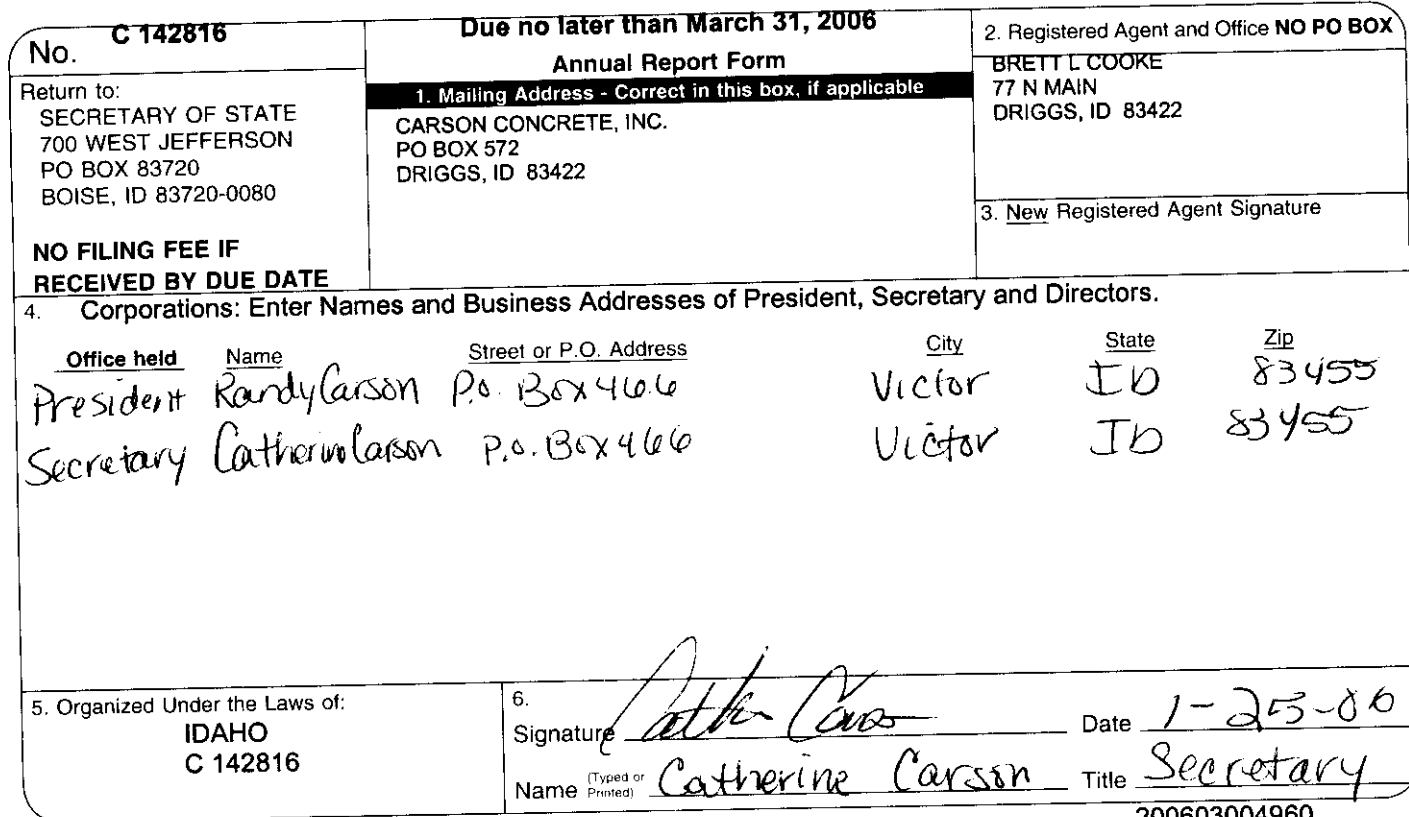 No. C 142816
Return to:
SECRETARY OF STATE
700 WEST JEFFERSON
PO BOX 83720
BOISE, ID 83720-0080
NO FILING FEE IF
RECEIVED BY DUE DATE
Due no later than March 31, 2006
Annual Report Form
1. Mailing Address - Correct in this box, if applicable
CARSON CONCRETE, INC.
PO BOX 572
DRIGGS, ID 83422
2. Registered Agent and Office NO PO BOX
BRETT L COOKE
77 N MAIN
DRIGGS, ID 83422
3. New Registered Agent Signature
4. Corporations: Enter Names and Business Addresses of President, Secretary and Directors.
Office held Name Street or P.O. Address City State Zip
President Randy Carson P.O. Box 466 Victor ID 83455
Secretary Catherine Carson P.O. Box 466 Victor ID 83455
5. Organized Under the Laws of:
IDAHO
C 142816
6.
Signature Date 1-25-06
Name (Typed or Printed) Catherine Carson Title Secretary
200603004960